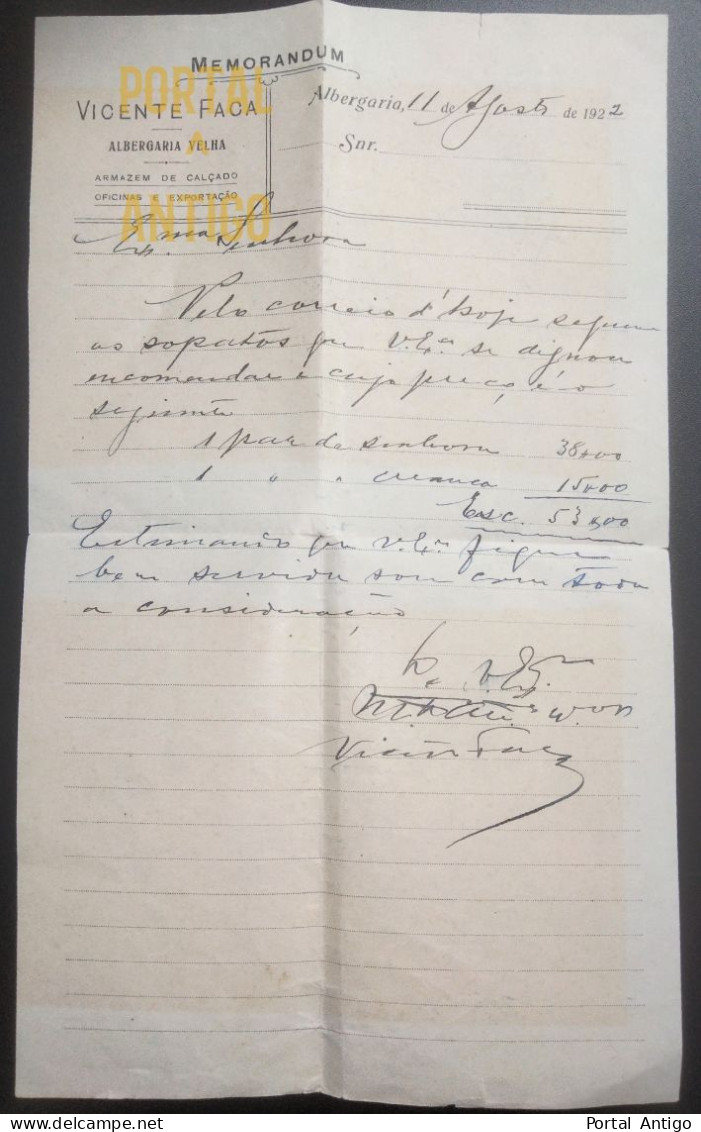 MEMORANDUM
VICENTE FACA
ALBERGARIA VELHA
ARMAZEM DE CALÇADO
OFICINAS E EXPORTAÇÃO
PORTAL
A
ANTIGO
Albergaria, 11 de Agosto de 1922
Snr.
Exma Senhora
Pelo correio d'hoje seguem
os sapatos que V. Exa se dignou
encomendar e cujo preço é o
seguinte
1 par de senhora 38$00
1 " " creança 15$00
Esc. 53$00
Estimando que V. Exa fique
bem servida sou com toda
a consideração
De V. Exa
Vicente Faca
Portal Antigo